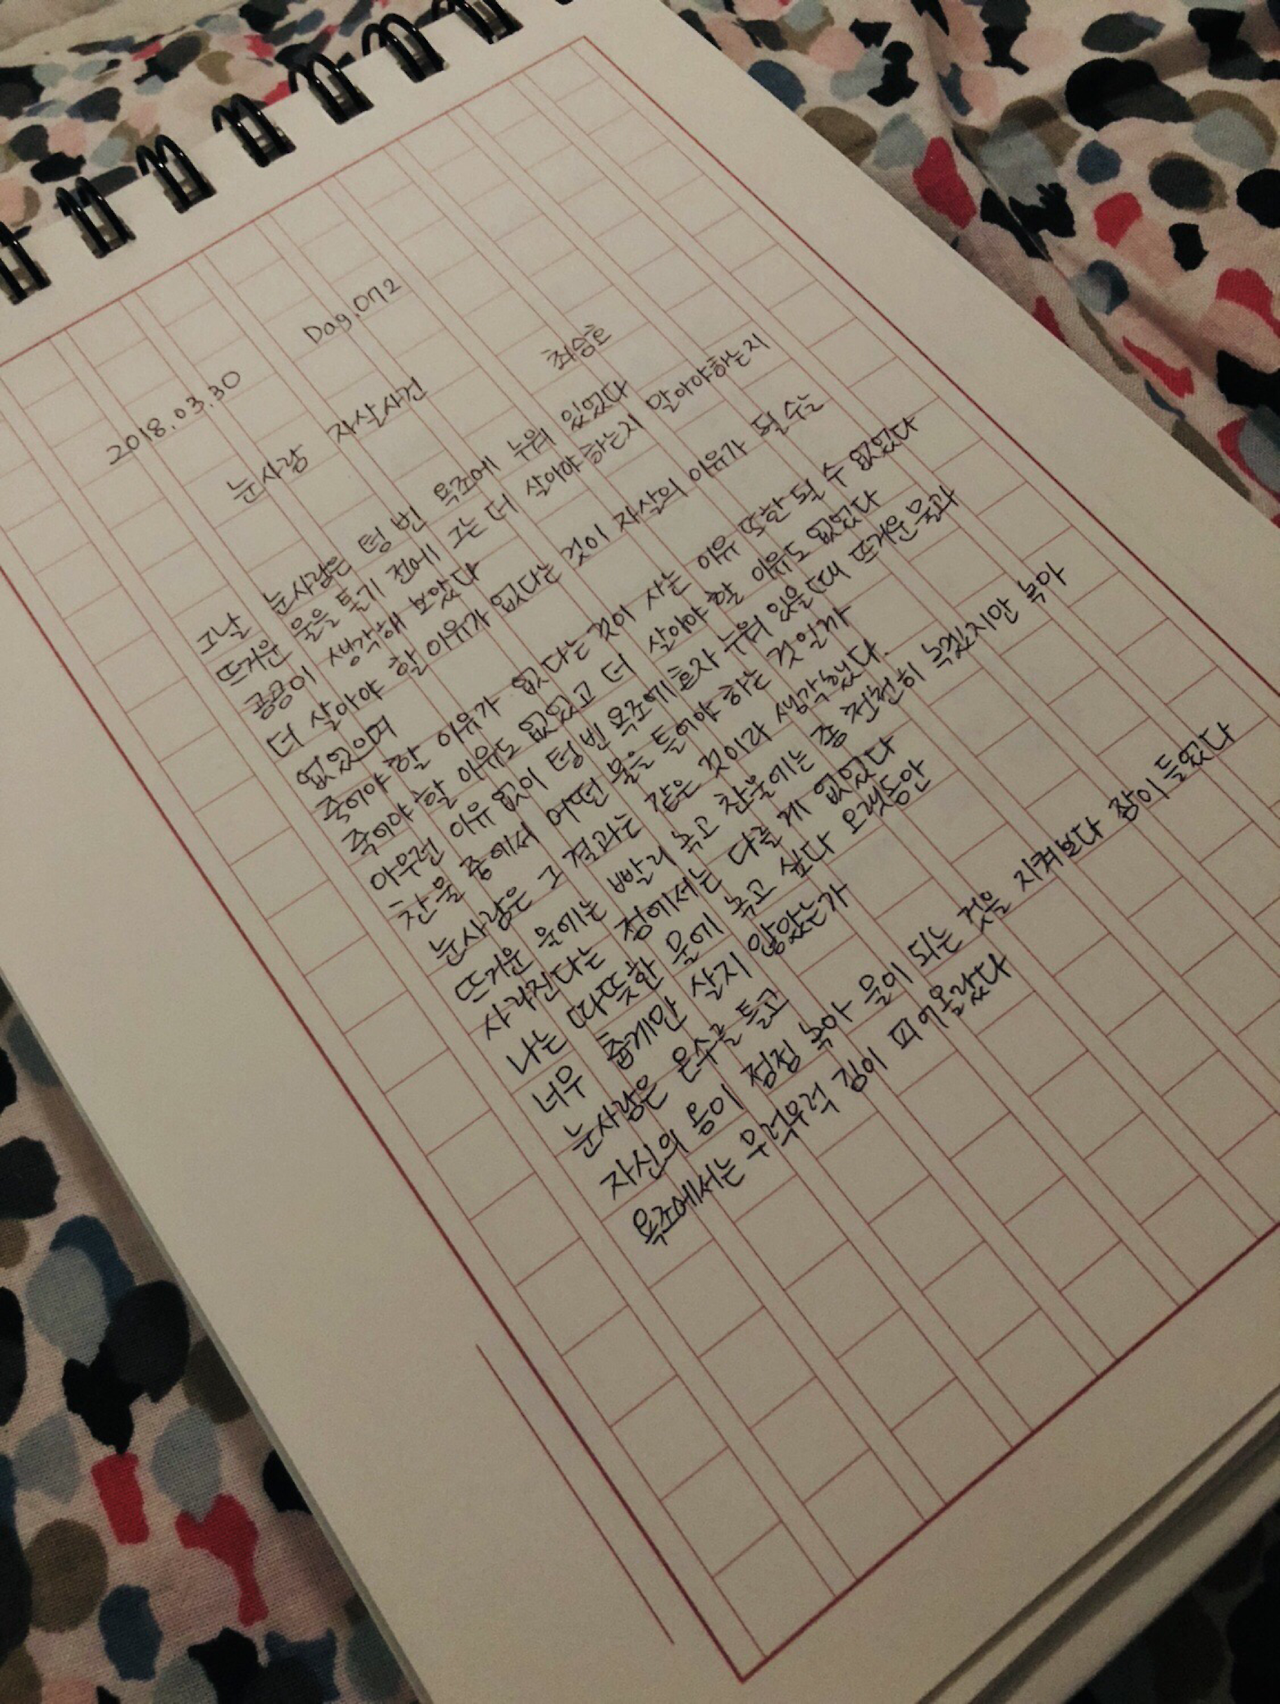 2018.03.30
Day.072
눈사람 자살사건
최승호
그날 눈사람은 텅 빈 욕조에 누워 있었다
뜨거운 물을 틀기 전에 그는 더 살아야 하는지 말아야하는지
곰곰이 생각해 보았다
더 살아야 할 이유가 없다는 것이 자살의 이유가 될 수는
없었으며
죽어야 할 이유가 없다는 것이 사는 이유 또한 될 수 없었다
죽어야 할 이유도 없었고 더 살아야 할 이유도 없었다
아무런 이유 없이 텅 빈 욕조에 혼자 누워 있을 때 뜨거운 물과
찬물 중에서 어떤 물을 틀어야 하는 것일까
눈사람은 그 결과는 같은 것이라 생각했다.
뜨거운 물에는 빨리 녹고 찬물에는 좀 천천히 녹겠지만 녹아
사라진다는 점에서는 다를 게 없었다
나는 따뜻한 물에 녹고 싶다 오랫동안
너무 춥게만 살지 않았는가
눈사람은 온수를 틀고
자신의 몸이 점점 녹아 물이 되는 것을 지켜보다 잠이 들었다
욕조에서는 무럭무럭 김이 피어올랐다